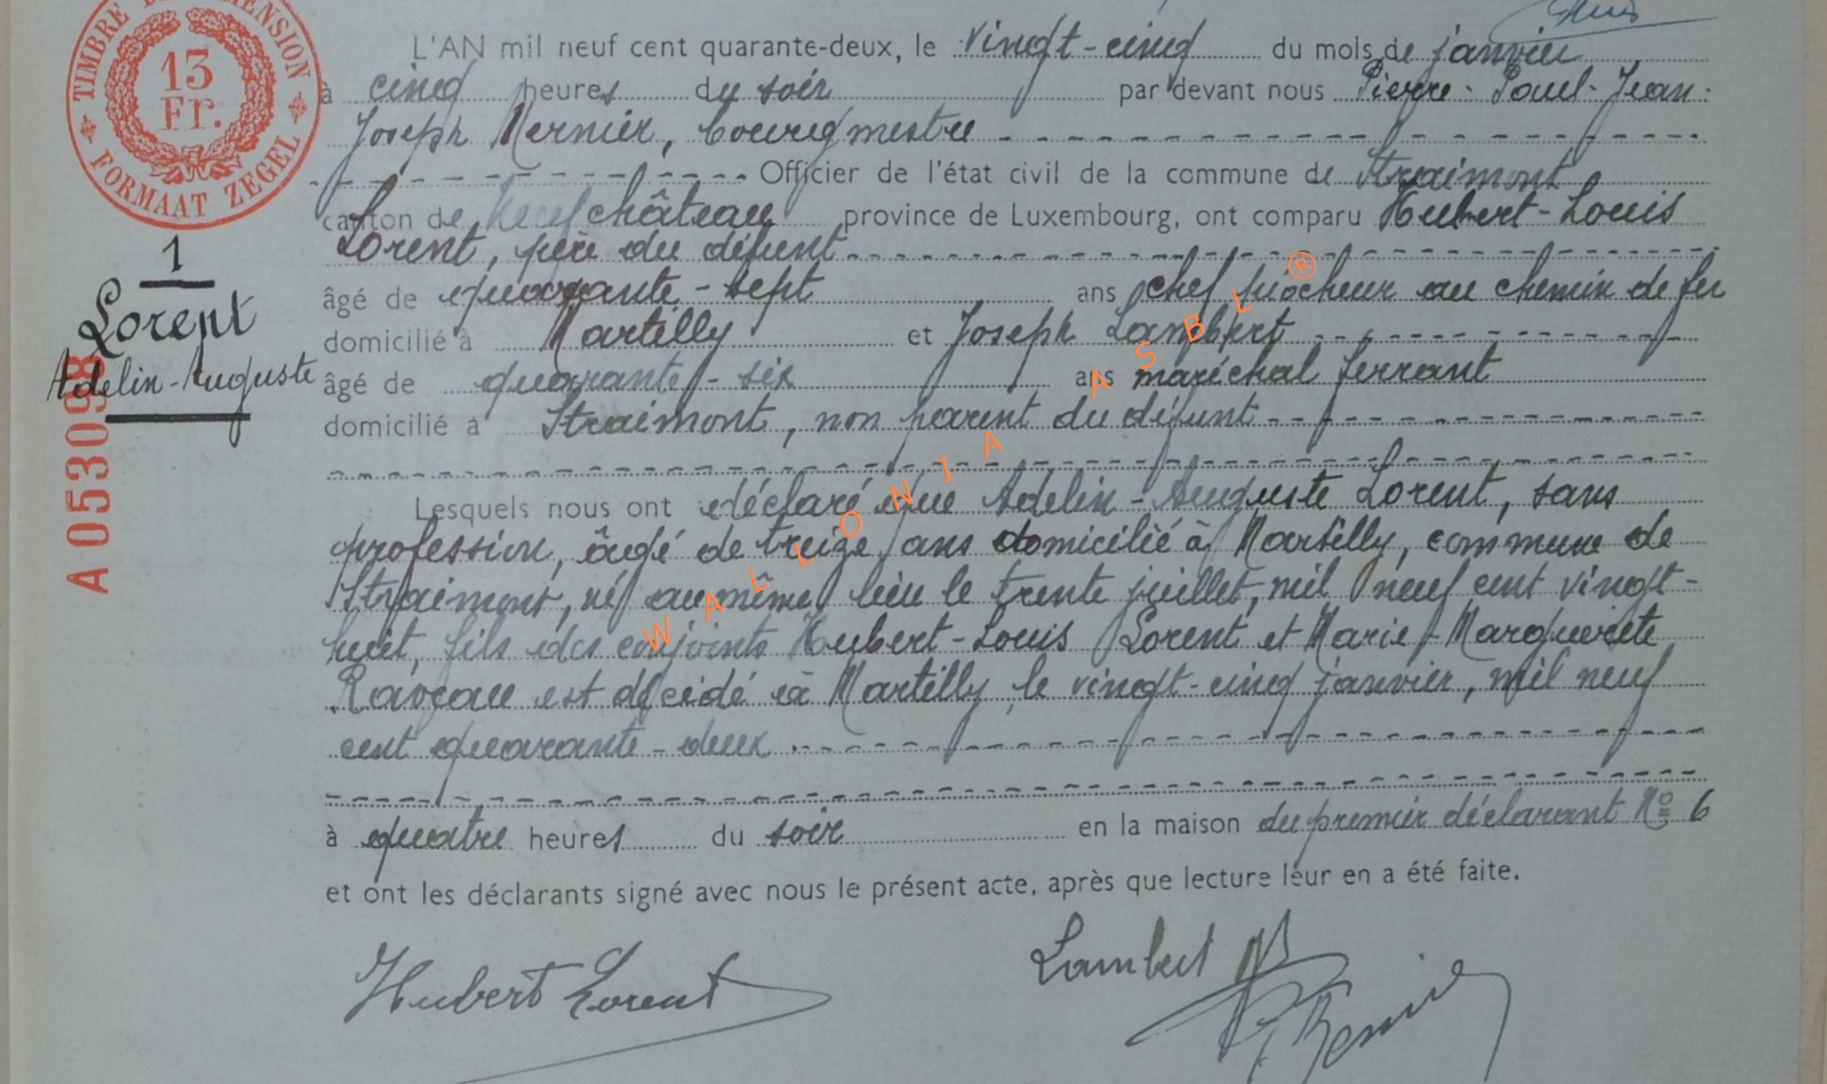 TIMBRE DE DIMENSION
13
Fr.
FORMAAT ZEGEL
L'AN mil neuf cent quarante-deux, le vingt-cinq du mois de janvier
à cinq heures du soir par devant nous Pierre-Paul-Jean-
Joseph Bernier, bourgmestre
Officier de l'état civil de la commune de Straimont
canton de Neufchâteau province de Luxembourg, ont comparu Hubert-Louis
Lorent, père du défunt
âgé de quarante-sept ans chef piocheur au chemin de fer
domicilié à Martilly et Joseph Lambert
âgé de quarante-six ans maréchal ferrant
domicilié à Straimont, non parent du défunt
Lesquels nous ont déclaré que Adelin-Auguste Lorent, sans
profession, âgé de treize ans domicilié à Martilly, commune de
Straimont, né au même lieu le trente juillet, mil neuf cent vingt-
huit, fils des conjoints Hubert-Louis Lorent et Marie-Marguerite
est décédé à Martilly, le vingt-cinq janvier, mil neuf
cent quarante-deux
à quatre heures du soir en la maison du premier déclarant No 6
et ont les déclarants signé avec nous le présent acte, après que lecture leur en a été faite.
Hubert Lorent
Lambert
1
Lorent
Adelin-Auguste
A053098
WALLONIA ASBL ®